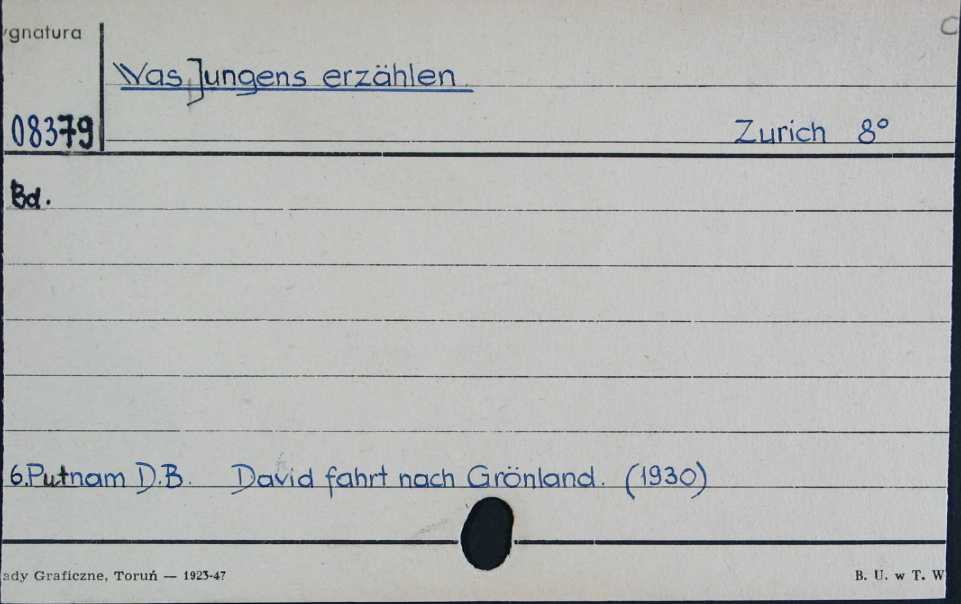 ygnatura
Was Jungens erzählen
08379
Zurich 8°
Bd.
6. Putnam D.B. David fahrt nach Grönland. (1930)
ady Graficzne, Toruń — 1923-47
B. U. w T. W